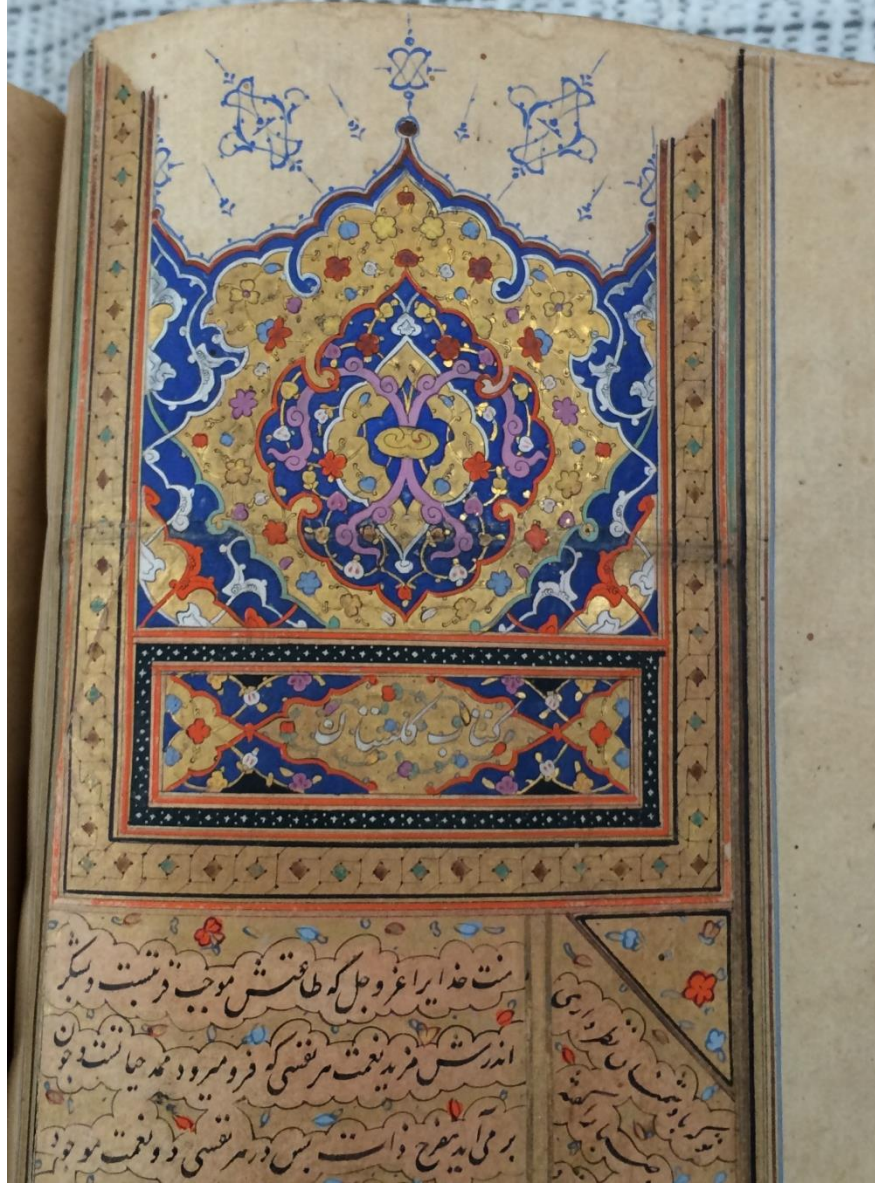 کتاب گلستان
منت خدایرا عز و جل که طاعتش موجب قربتست و بشکر
اندرش مزید نعمت هر نفسی که فرو میرود ممد حیاتست و چون
بر می آید مفرح ذات بس در هر نفسی دو نعمت موجود